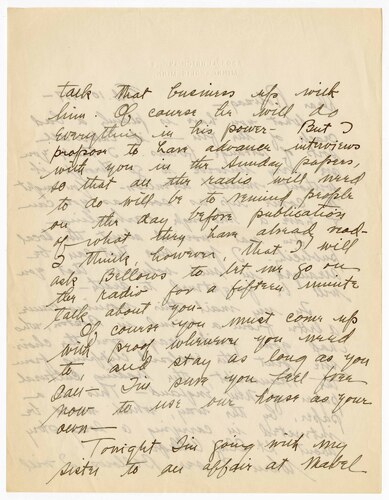 talk that business up with
him. Of course he will do
everything in his power - But I
propose to have advance interviews
with you in the Sunday papers,
so that all the radio will need
to do will be to remind people
on the day before publication
of what they have alread read -
I think, however, that I will
ask Bellows to let me go on
the radio for a fifteen minute
talk about you -
Of course you must come up
with proof whenever you need
to and stay as long as you
can - I'm sure you feel free
now to use our house as your
own -
Tonight I'm going with my
sister to an affair at Mabel